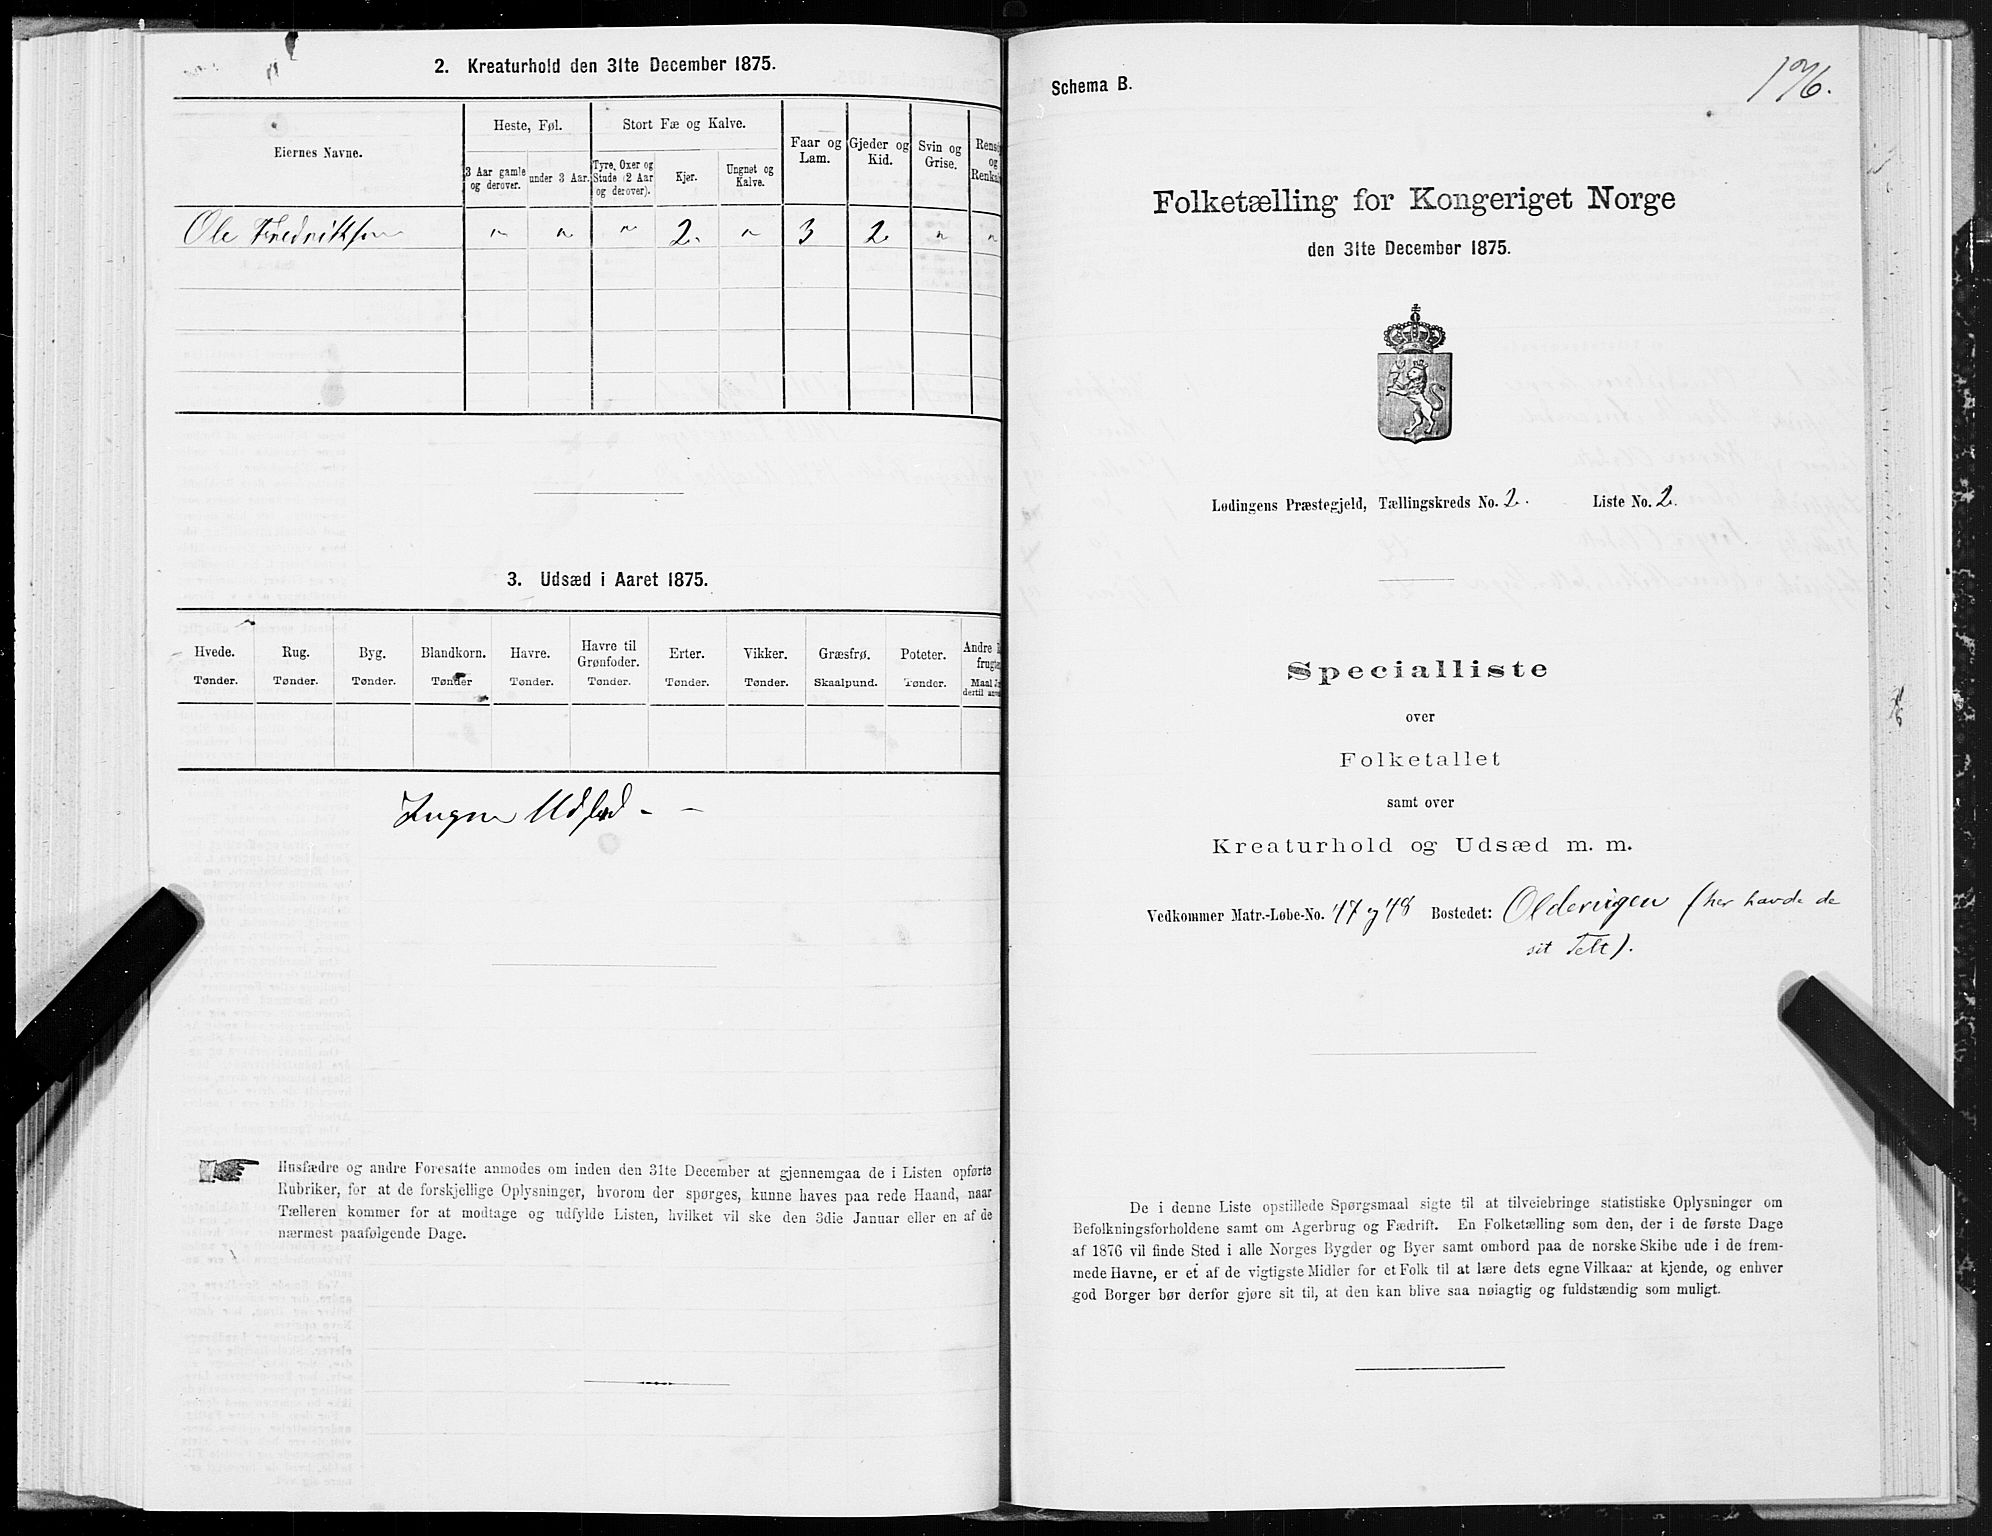 2. Kreaturhold den 31te December 1875.
Eiernes Navne.
Heste, Føl.
Stort Fæ og Kalve.
Faar og Lam.
Gjeder og Kid.
Svin og Grise.
og
3 Aar gamle og derover.
under 3 Aar.
Tyre, Oxer og Stude (2 Aar og derover).
Kjør.
Ungnøt og Kalve.
Ole Fredriksen " " " 2. " 3 2 " "
3. Udsæd i Aaret 1875.
Hvede. Rug. Byg. Blandkorn. Havre. Havre til Grønfoder. Erter. Vikker. Græsfrø. Poteter. Andre
Tønder. Tønder. Tønder. Tønder Tønder. Tønder. Tønder. Tønder. Skaalpund. Tønder. Maal
Ingen Udsæd - -
Husfædre og andre Foresatte anmodes om inden den 31te December at gjennemgaa de i Listen opførte
Rubriker, for at de forskjellige Oplysninger, hvorom der spørges, kunne haves paa rede Haand, naar
Tælleren kommer for at modtage og udfylde Listen, hvilket vil ske den 3die Januar eller en af de
nærmest paafølgende Dage.
176.
Schema B.
Folketælling for Kongeriget Norge
den 31te December 1875.
Lødingens Præstegjeld, Tællingskreds No. 2. Liste No. 2.
Specialliste
over
Folketallet
samt over
Kreaturhold og Udsæd m. m.
Vedkommer Matr.-Løbe-No. 47 og 48 Bostedet: Oldevigen (her havde de
sit Telt).
De i denne Liste opstillede Spørgsmaal sigte til at tilveiebringe statistiske Oplysninger om
Befolkningsforholdene samt om Agerbrug og Fædrift. En Folketælling som den, der i de første Dage
af 1876 vil finde Sted i alle Norges Bygder og Byer samt ombord paa de norske Skibe ude i de frem-
mede Havne, er et af de vigtigste Midler for et Folk til at lære dets egne Vilkaar at kjende, og enhver
god Borger bør derfor gjøre sit til, at den kan blive saa nøiagtig og fuldstændig som muligt.